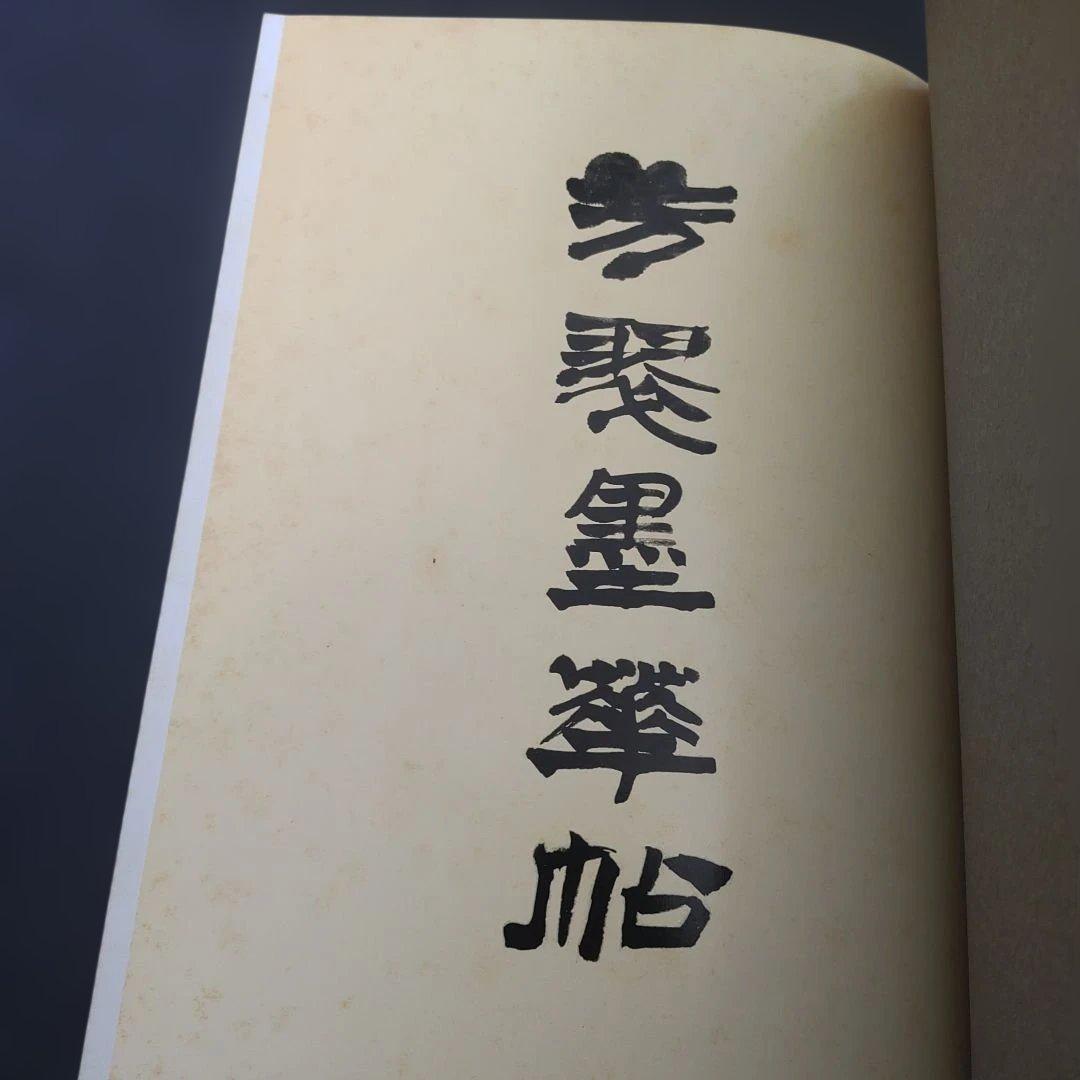 芳翠墨華帖